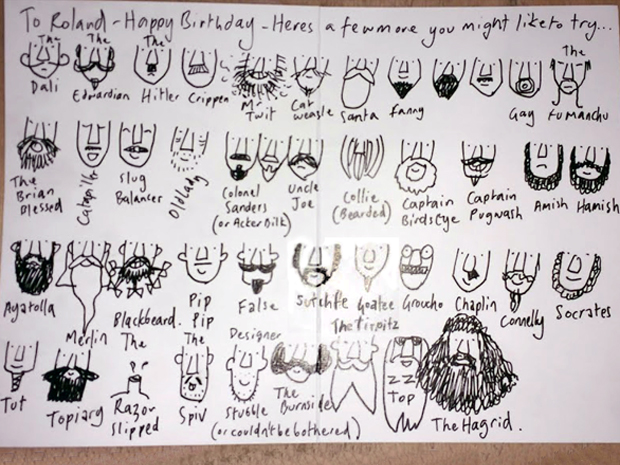 To Roland - Happy Birthday - Heres a few more you might like to try...
The Dali
The Edwardian
The Hitler
Crippen
Mr Twit
Cat weasle
Santa
Fanny
Gay
The Fu Manchu
The Brian Blessed
Catapilla
Slug Balancer
Old Lady
Colonel Sanders
(or Acker Bilk)
Uncle Joe
Collie
(Bearded)
Captain Birdseye
Captain Pugwash
Amish
Hamish
Ayatolla
Merlin
Blackbeard.
Pip Pip
False
Sutcliffe
Goatee
Groucho
Chaplin
Connelly
Socrates
Tut
Topiary
The Razor Slipped
The Spiv
Designer Stubble
(or couldn't be bothered)
The Burnside
The Tirpitz
ZZ Top
The Hagrid.